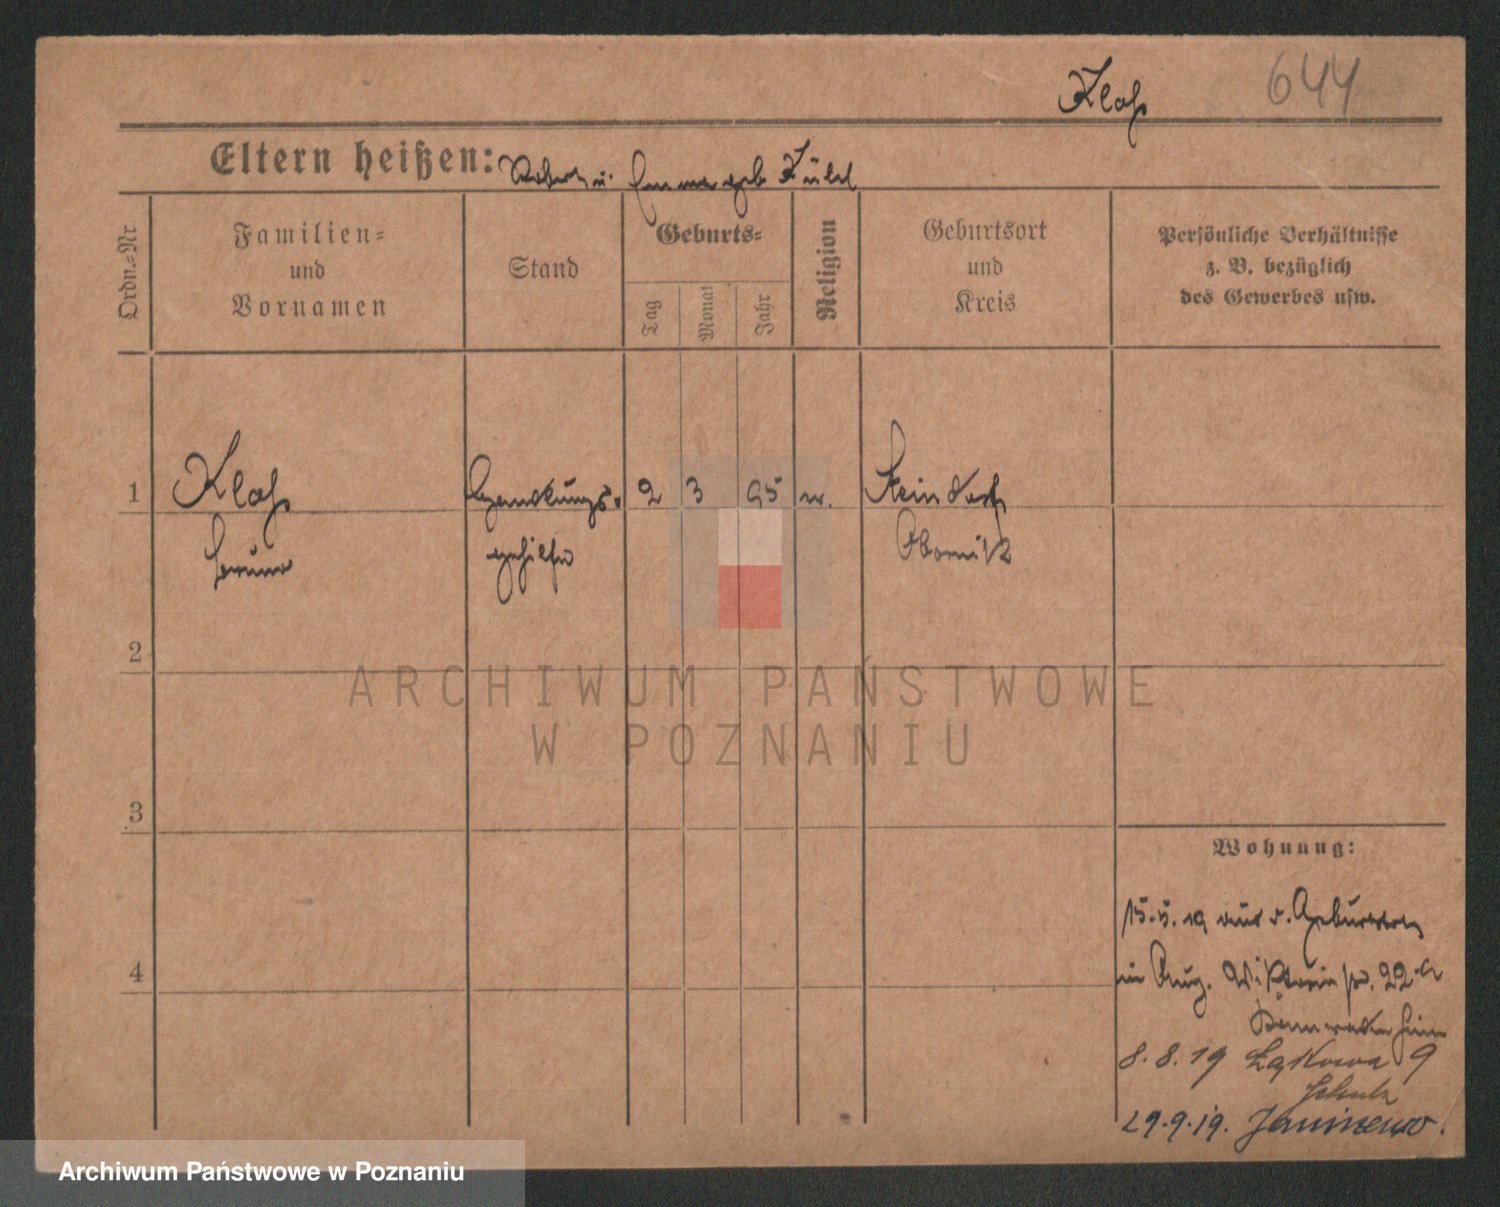 Klaß 644
Eltern heißen: Robert u. Emma geb
Ordn.=Nr
Familien=
und
Vornamen
Stand
Geburts=
Tag
Monat
Jahr
Religion
Geburtsort
und
Kreis
Persönliche Verhältnisse
z. B. bezüglich
des Gewerbes usw.
1 Klaß 2 3 95 Steindorf
gehilfe Obornik
2
3
4
Wohnung:
15.5.19 aus
in Aug. Viktoria 22
8.8.19 Łąkowa 9
Schulz
29.9.19.
ARCHIWUM PAŃSTWOWE
W POZNANIU
Archiwum Państwowe w Poznaniu